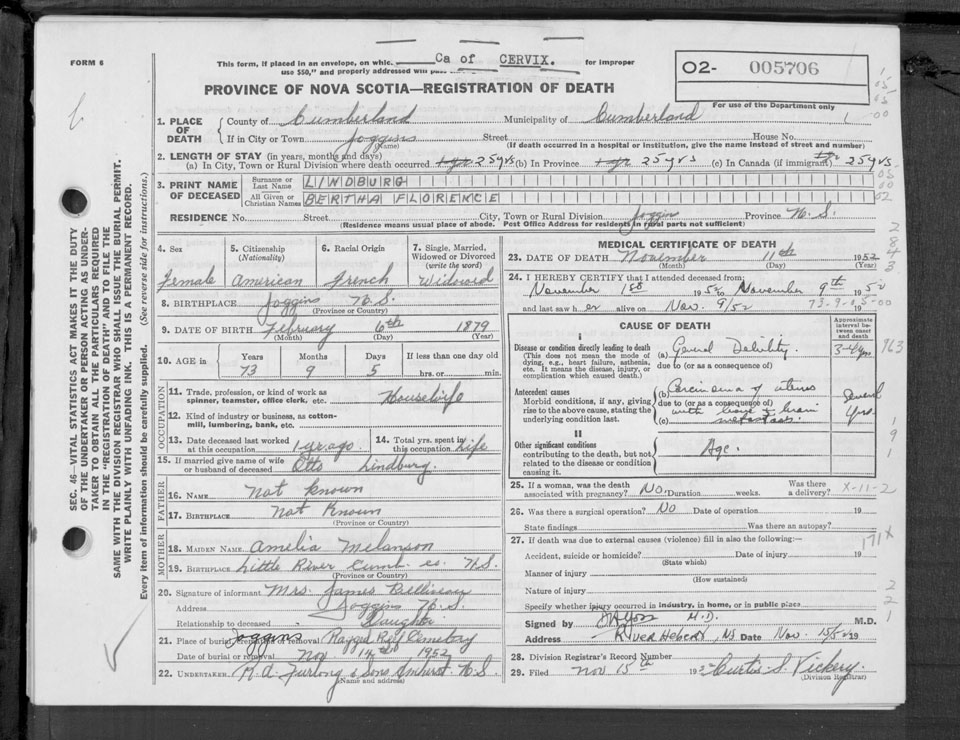 FORM 6
This form, if placed in an envelope, on which Ca of CERVIX. for improper
use $50," and properly addressed will pass
O2- 005706
For use of the Department only
PROVINCE OF NOVA SCOTIA—REGISTRATION OF DEATH
1. PLACE OF DEATH County of Cumberland Municipality of Cumberland
If in City or Town Joggins Street House No.
(Name) (If death occurred in a hospital or institution, give the name instead of street and number)
2. LENGTH OF STAY (in years, months and days)
(a) In City, Town or Rural Division where death occurred 25 yrs (b) In Province 25 yrs (c) In Canada (if immigrant) 25 yrs
3. PRINT NAME OF DECEASED Surname or Last Name LINDBURG
All Given or Christian Names BERTHA FLORENCE
RESIDENCE No. Street City, Town or Rural Division Joggins Province N.S.
(Residence means usual place of abode. Post Office Address for Residents in rural parts not sufficient)
4. Sex 5. Citizenship (Nationality) 6. Racial Origin 7. Single, Married, Widowed or Divorced (write the word)
Female American French Widowed
8. BIRTHPLACE Joggins N.S.
(Province or Country)
9. DATE OF BIRTH February 6th 1879
(Month) (Day) (Year)
10. AGE in Years Months Days If less than one day old
73 9 5 hrs. or min.
OCCUPATION
11. Trade, profession, or kind of work as spinner, teamster, office clerk, etc. Housewife
12. Kind of industry or business, as cotton-mill, lumbering, bank, etc.
13. Date deceased last worked at this occupation 1 yr. ago 14. Total yrs. spent in this occupation Life
15. If married give name of wife or husband of deceased Otto Lindburg.
FATHER
16. NAME Not known
17. BIRTHPLACE Not Known
(Province or Country)
MOTHER
18. MAIDEN NAME Amelia Melanson
19. BIRTHPLACE Little River Cumb. co. N.S.
(Province or Country)
20. Signature of informant Mrs. James
Address Joggins N.S.
Relationship to deceased Daughter
21. Place of burial, cremation or removal Joggins Ragged Reef Cemetery
Date of burial or removal Nov 14th 1952
22. UNDERTAKER H.A. Furlong & sons Amherst N.S.
(Name and address)
MEDICAL CERTIFICATE OF DEATH
23. DATE OF DEATH November 11th 1952
(Month) (Day) (Year)
24. I HEREBY CERTIFY that I attended deceased from
November 1st 1952 to November 9th 1952
and last saw her alive on Nov. 9/52 73-9-05-00
CAUSE OF DEATH
Approximate interval between onset and death
I
Disease or condition directly leading to death (a) General Debility
(This does not mean the mode of dying, e.g., heart failure, asthenia, etc. It means the disease, injury, or complication which caused death.)
due to (or as a consequence of)
Antecedent causes (b) Carcinoma of uterus Several yrs.
Morbid conditions, if any, giving rise to the above cause, stating the underlying condition last.
due to (or as a consequence of)
(c) with bone & brain metastases.
II
Other significant conditions Age.
contributing to the death, but not related to the disease or condition causing it.
25. If a woman, was the death associated with pregnancy? No. Duration weeks. Was there a delivery? X-11-2
26. Was there a surgical operation? No Date of operation 19
State findings Was there an autopsy?
27. If death was due to external causes (violence) fill in also the following:— 171X
Accident, suicide or homicide? Date of injury 19
(State which)
Manner of injury
(How sustained)
Nature of injury
Specify whether injury occurred in industry, in home, or in public place
Signed by M.D. M.D.
Address River Hebert NS. Date Nov. 15/52 19
28. Division Registrar's Record Number
29. Filed Nov 15th 1952 Curtis S. Vickery.
(Division Registrar)
SEC. 46 VITAL STATISTICS ACT MAKES IT THE DUTY
OF THE UNDERTAKER OR PERSON ACTING AS UNDER-
TAKER TO OBTAIN ALL THE PARTICULARS REQUIRED
IN THE "REGISTRATION OF DEATH" AND TO FILE THE
SAME WITH THE DIVISION REGISTRAR WHO SHALL ISSUE THE BURIAL PERMIT.
WRITE PLAINLY WITH UNFADING INK. THIS IS A PERMANENT RECORD.
Every item of information should be carefully supplied. (See reverse side for instructions.)